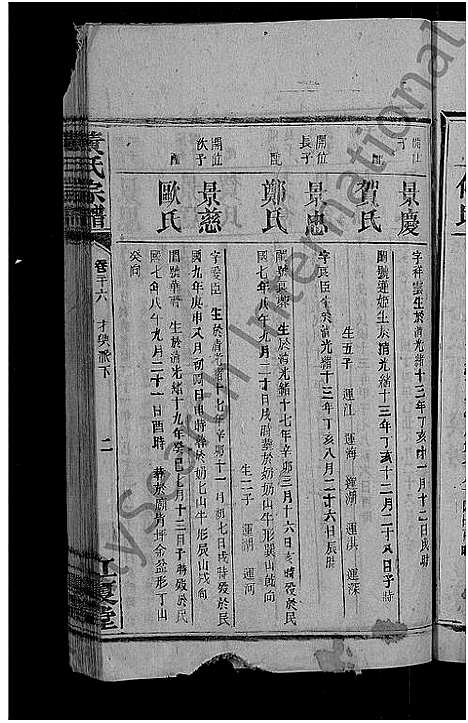 景慶
字祥雲生於清光緒十三年丁亥十一月十二日戌時
配
賀氏
閨號蓮姬生於清光緒十三年丁亥十二月二十八日子時
生五子 運江 運海 運湖 運洪 運深
開位
長子
景忠
字良臣生於清光緒十三年丁亥八月二十六日辰時
配
鄭氏
生於清光緒十七年辛卯三月十六日亥時歿於民
國七年八年九月二十日戌時葬於奶奶山牛形巽山乾向
生二子 運湖 運河
開位
次子
景慈
字愛臣 生於清光緒十七年辛卯十一月初七日戌時歿於民
國九年庚申又月初四日申時葬於奶奶山牛形辰山戌向
配
歐氏
閨號華 生於清光緒十九年癸巳七月十三日子時歿於民
國七年八午九月二十一日酉時 葬於廟背坪金盆形丁山
癸向
黃氏宗譜
卷二十六
才奕派下
二
江夏堂
SearchInternational